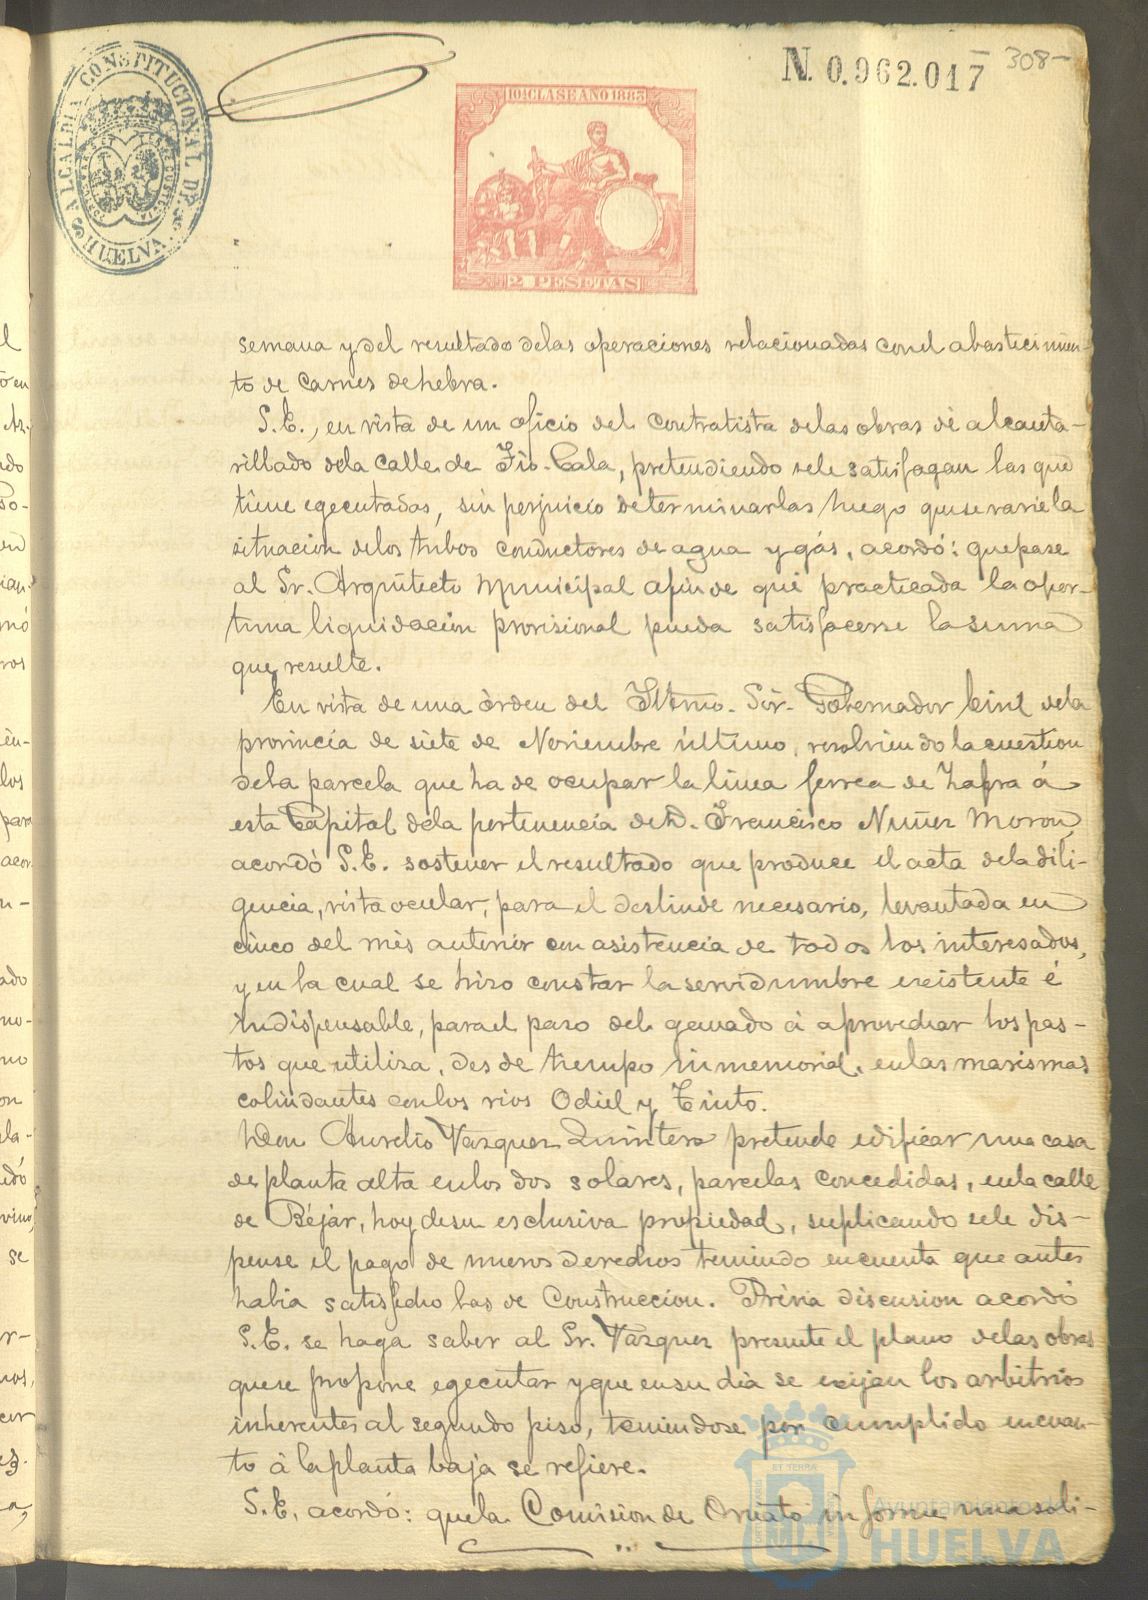 ALCALDIA CONSTITUCIONAL DE
HUELVA
N. 0.962.017
308
10ª CLASE AÑO 1885
2 PESETAS
semana y del resultado delas operaciones relacionadas conel abastecimien-
to de carnes de hebra.
S.E., en vista de un oficio del contratista delas obras de alcanta-
rillado dela calle de Fio. Cala, pretendiendo sele satisfagan las que
tiene egecutadas, sin perjuicio determinarlas luego quese varie la
situacion delos tubos conductores de agua y gás, acordó: quepase
al Sr. Arquitecto Municipal afin de que practicada la opor-
tuna liquidacion provisional pueda satisfacerse la suma
que resulte.
En vista de una órden del Iltmo. Sör. Gobernador Civil dela
provincia de siete de Noviembre último, resolviendo la cuestion
dela parcela que ha de ocupar la linea ferrea de Zafra á
esta Capital dela pertenencia de D. Francisco Nuñez Moron,
acordó S.E. sostener el resultado que produce el acta dela dili-
gencia, vista ocular, para el deslinde necesario, levantada en
cinco del més anterior con asistencia de todos los interesados,
y en la cual se hizo constar la servidumbre existente é
indispensable, parael paso del ganado á aprovechar los pas-
tos que utiliza, desde tiempo inmemorial, enlas marismas
colindantes conlos rios Odiel y Tinto.
Don Aurelio Vazquez Quintero pretende edificar una casa
de planta alta enlos dos solares, parcelas concedidas, enla calle
de Béjár, hoy desu esclusiva propiedad, suplicando sele dis-
pense el pago de nuevos derechos teniendo encuenta que antes
habia satisfecho las de Construccion. Prévia discusion acordó
S.E. se haga saber al Sr. Vazquez presente el plano delas obras
quese propone egecutar y que ensu dia se exijan los arbitrios
inherentes al segundo piso, teniendose por cumplido encuan-
to á la planta baja se refiere.
S.E. acordó: quela Comision de Ornato informe una soli-
Ayuntamiento de
HUELVA